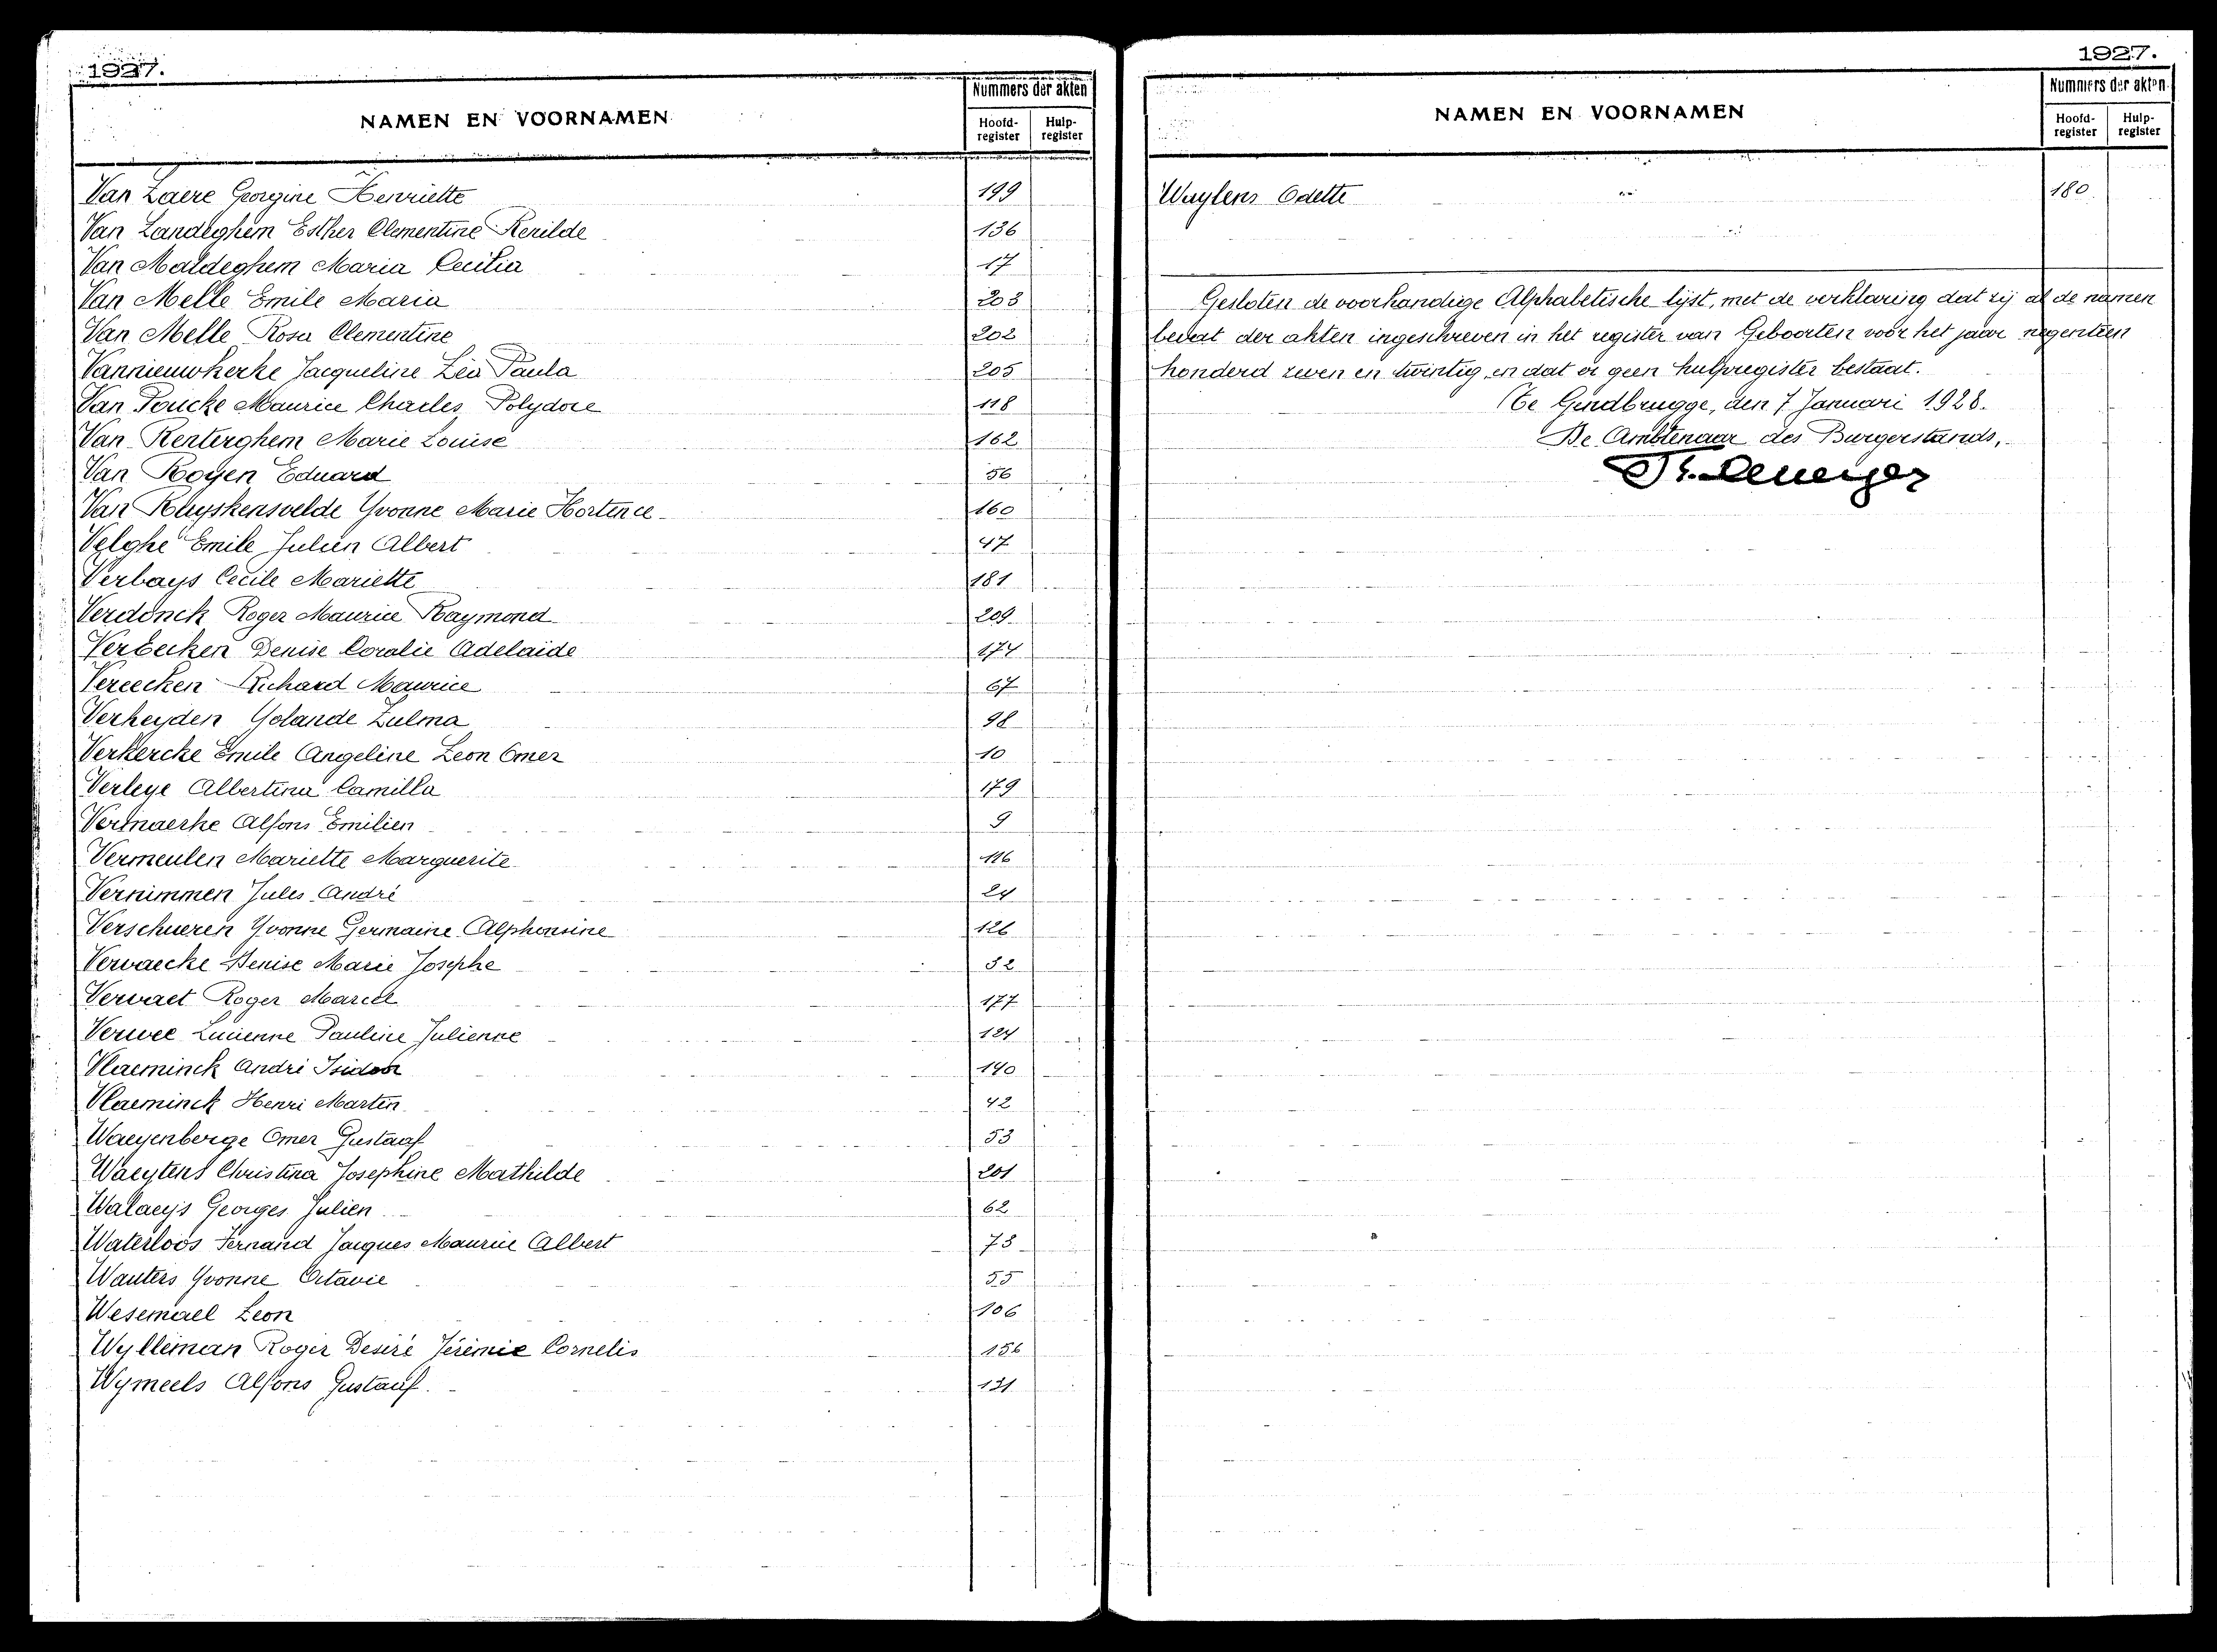 1927.
NAMEN EN VOORNAMEN
Nummers der akten
Hoofd-register
Hulp-register
Van Laere Georgine Henriette 199
Van Landeghem Esther Clementine Renilde 136
Van Maldeghem Maria Cecilia 17
Van Melle Emile Maria 203
Van Melle Rosa Clementine 202
Vannieuwkerke Jacqueline Léa Paula 205
Van Poucke Maurice Charles Polydore 118
Van Renterghem Marie Louise 162
Van Rogen Eduard 56
Van Ruyskensvelde Yvonne Marie Hortence 160
Velghe Emile Julien Albert 47
Verbays Cecile Mariette 181
Verdonck Roger Maurice Raymond 209
Verbecken Denise Coralie Adelaïde 174
Vereecken Richard Maurice 67
Verheyden Yolande Zulma 98
Verkercke Emile Angeline Leon Omer 10
Verleye Albertina Camilla 179
Vermaerke Alfons Emilien 9
Vermeulen Mariette Marguerite 116
Vernimmen Jules André 24
Verschueren Yvonne Germaine Alphonsine 126
Vervaecke Denise Marie Josephe 32
Vervaet Roger Marcel 177
Verwee Lucienne Pauline Julienne 124
Vlaeminck André Isidoor 140
Vlaeminck Henri Marten 42
Waeyenberge Omer Gustaaf 53
Waeytens Christina Josephine Mathilde 201
Walaeys Georges Julien 62
Waterloos Fernand Jacques Maurice Albert 73
Wauters Yvonne Octavie 55
Wesemael Leon 106
Wylleman Roger Desiré Jérémie Cornelis 156
Wymeels Alfons Gustaaf 131
1927.
NAMEN EN VOORNAMEN
Nummers der akten
Hoofd-register
Hulp-register
Wuylens Odette 180
Gesloten de voorhandige Alphabetische lijst, met de verklaring dat zij al de namen
bevat der akten ingeschreven in het register van Geboorten voor het jaar negentien
honderd zeven en twintig en dat er geen hulpregister bestaat.
Te Gendbrugge, den 7 Januari 1928.
De Ambtenaar des Burgerstands,